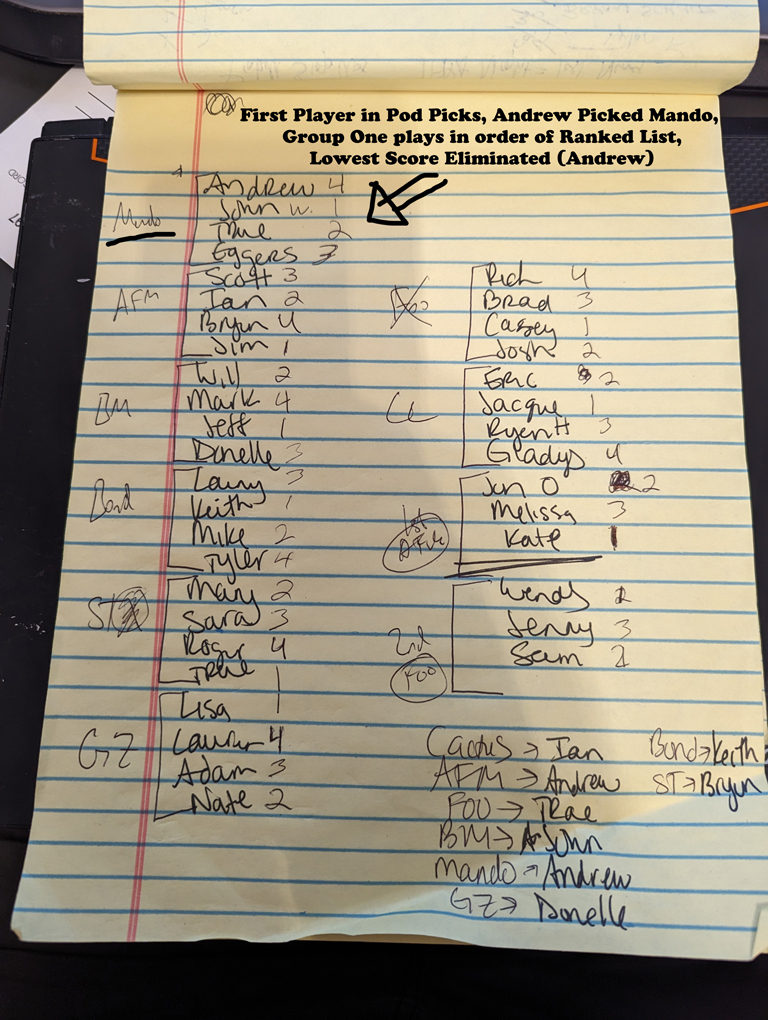 First Player in Pod Picks, Andrew Picked Mando,
Group One plays in order of Ranked List,
Lowest Score Eliminated (Andrew)
Mando
Andrew 4
John W. 1
Thue 2
Eggers 3
AFM
Scott 3
Ian 2
Bryun 4
Jim 1
BM
Will 2
Mark 4
Jeff 1
Donelle 3
Bond
Larry 3
Keith 1
Mike 2
Tyler 4
ST
Mary 2
Sara 3
Roger 4
TRae 1
GZ
Lisa 1
Lauren 4
Adam 3
Nate 2
Foo
Rich 4
Brad 3
Casey 1
Josh 2
CC
Eric 2
Jacque 1
Ryen H 3
Gladys 4
1st
AFM
Jen O 2
Melissa 3
Kate 1
2nd
FOO
Wendy 2
Jenny 3
Sam 1
Cactus → Ian
AFM → Andrew
FOO → TRae
BM → John
Mando → Andrew
GZ → Donelle
Bond → Keith
ST → Bryun